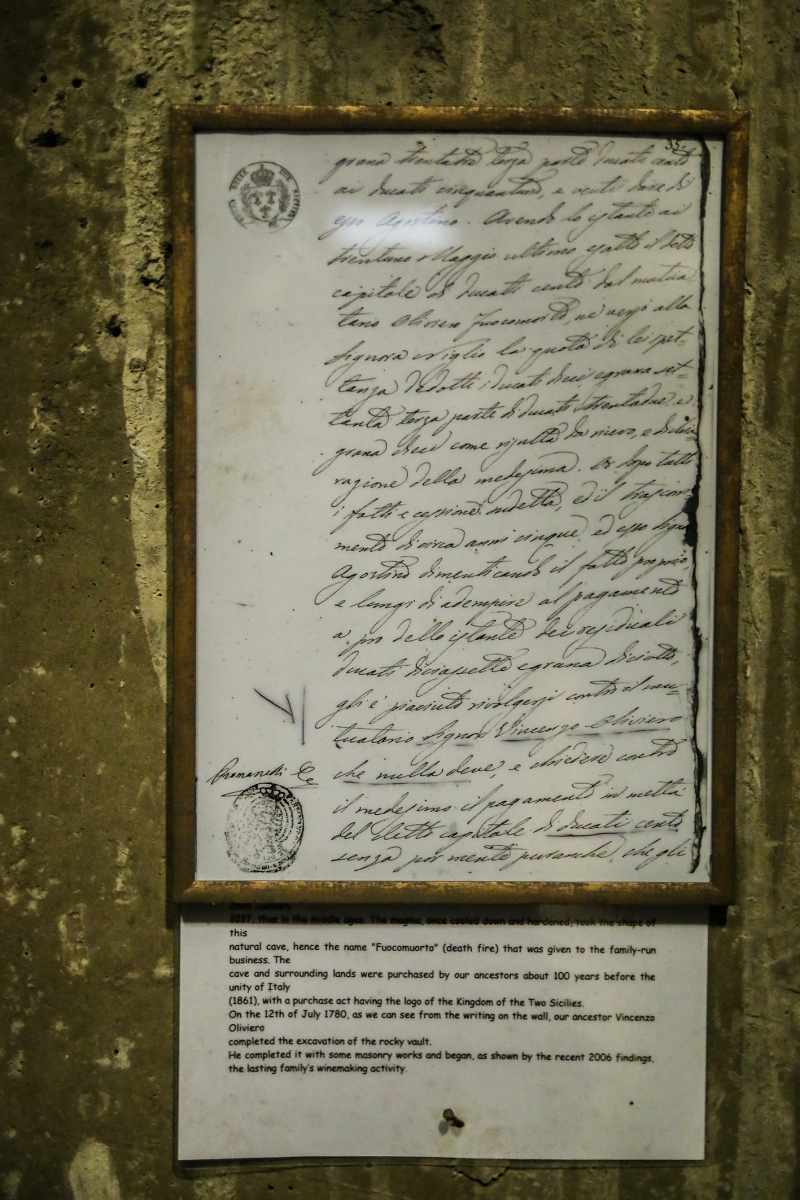 grana trentatre terza parte ducati cento
ai ducati cinquantuno, e venti dice di
esso Agostino. Avendo lo istante ai
trentuno Maggio ultimo esatto il detto
capitale di ducati cento dal mutua
tario Oliviero Fuocomorto, ne versò alla
Signora Niglio la quota di lei spet-
tanza dedotti i ducati dieci e grana set-
tanta terza parte di ducati trentadue e
grana dieci come risulta da ricevo, e
ragione della medesima. Or dopo tali
i fatti e cessione sudetta, ed il trascorri
mento di circa anni cinque, ed esso Signor
Agostino dimenticando il fatto proprio,
e lungi di adempire al pagamento
a pro dello istante dei residuali
ducati diciassette e grana diciotto,
gli è piaciuto rivolgersi contro il mu=
tuatario Signor Vincenzo Oliviero
che nulla deve, e chiedere contro
il medesimo il pagamento in metta
del detto capitale di ducati cento
senza por mente che gli
1037, thus in the middle ages. The magma, once cooled down and hardened, took the shape of
this
natural cave, hence the name "Fuocomuorto" (death fire) that was given to the family-run
business. The
cave and surrounding lands were purchased by our ancestors about 100 years before the
unity of Italy
(1861), with a purchase act having the logo of the Kingdom of the Two Sicilies.
On the 12th of July 1780, as we can see from the writing on the wall, our ancestor Vincenzo
Oliviero
completed the excavation of the rocky vault.
He completed it with some masonry works and began, as shown by the recent 2006 findings,
the lasting family's winemaking activity.